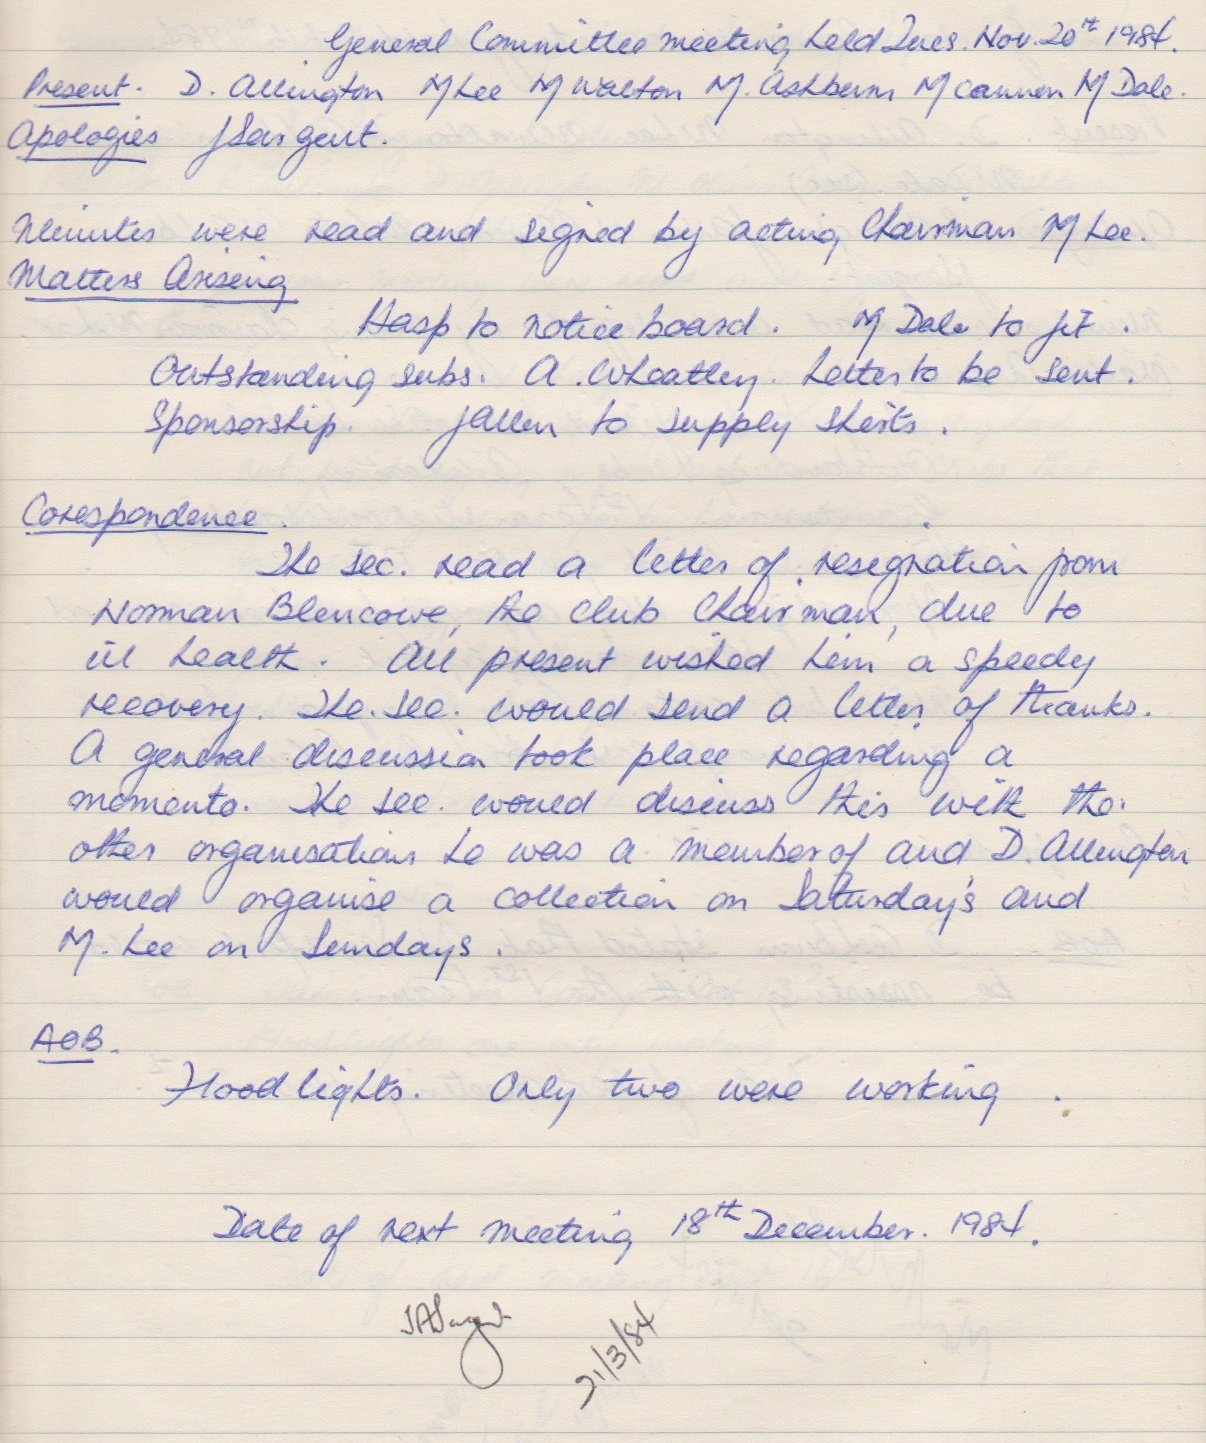 General Committee meeting held Tues. Nov. 20th 1984.
Present. D. Allington M Lee M Walton M. Ashburn M Cannon M Dale.
Apologies J Sargent.
Minutes were read and signed by acting Chairman M Lee.
Matters Arising
Hasp to notice board. M Dale to fit.
Outstanding subs. A. Wheatley. Letter to be sent.
Sponsorship. J Allen to supply shirts.
Corespondence.
The sec. read a letter of resignation from
Norman Blencowe, the club Chairman, due to
ill health. All present wished him a speedy
recovery. The sec. would send a letter of thanks.
A general discussion took place regarding a
momento. The sec. would discuss this with the
other organisation he was a member of and D. Allington
would organise a collection on Saturday's and
M. Lee on Sundays.
AOB.
Floodlights. Only two were working.
Date of next meeting 18th December. 1984.
JASargent
21/3/84